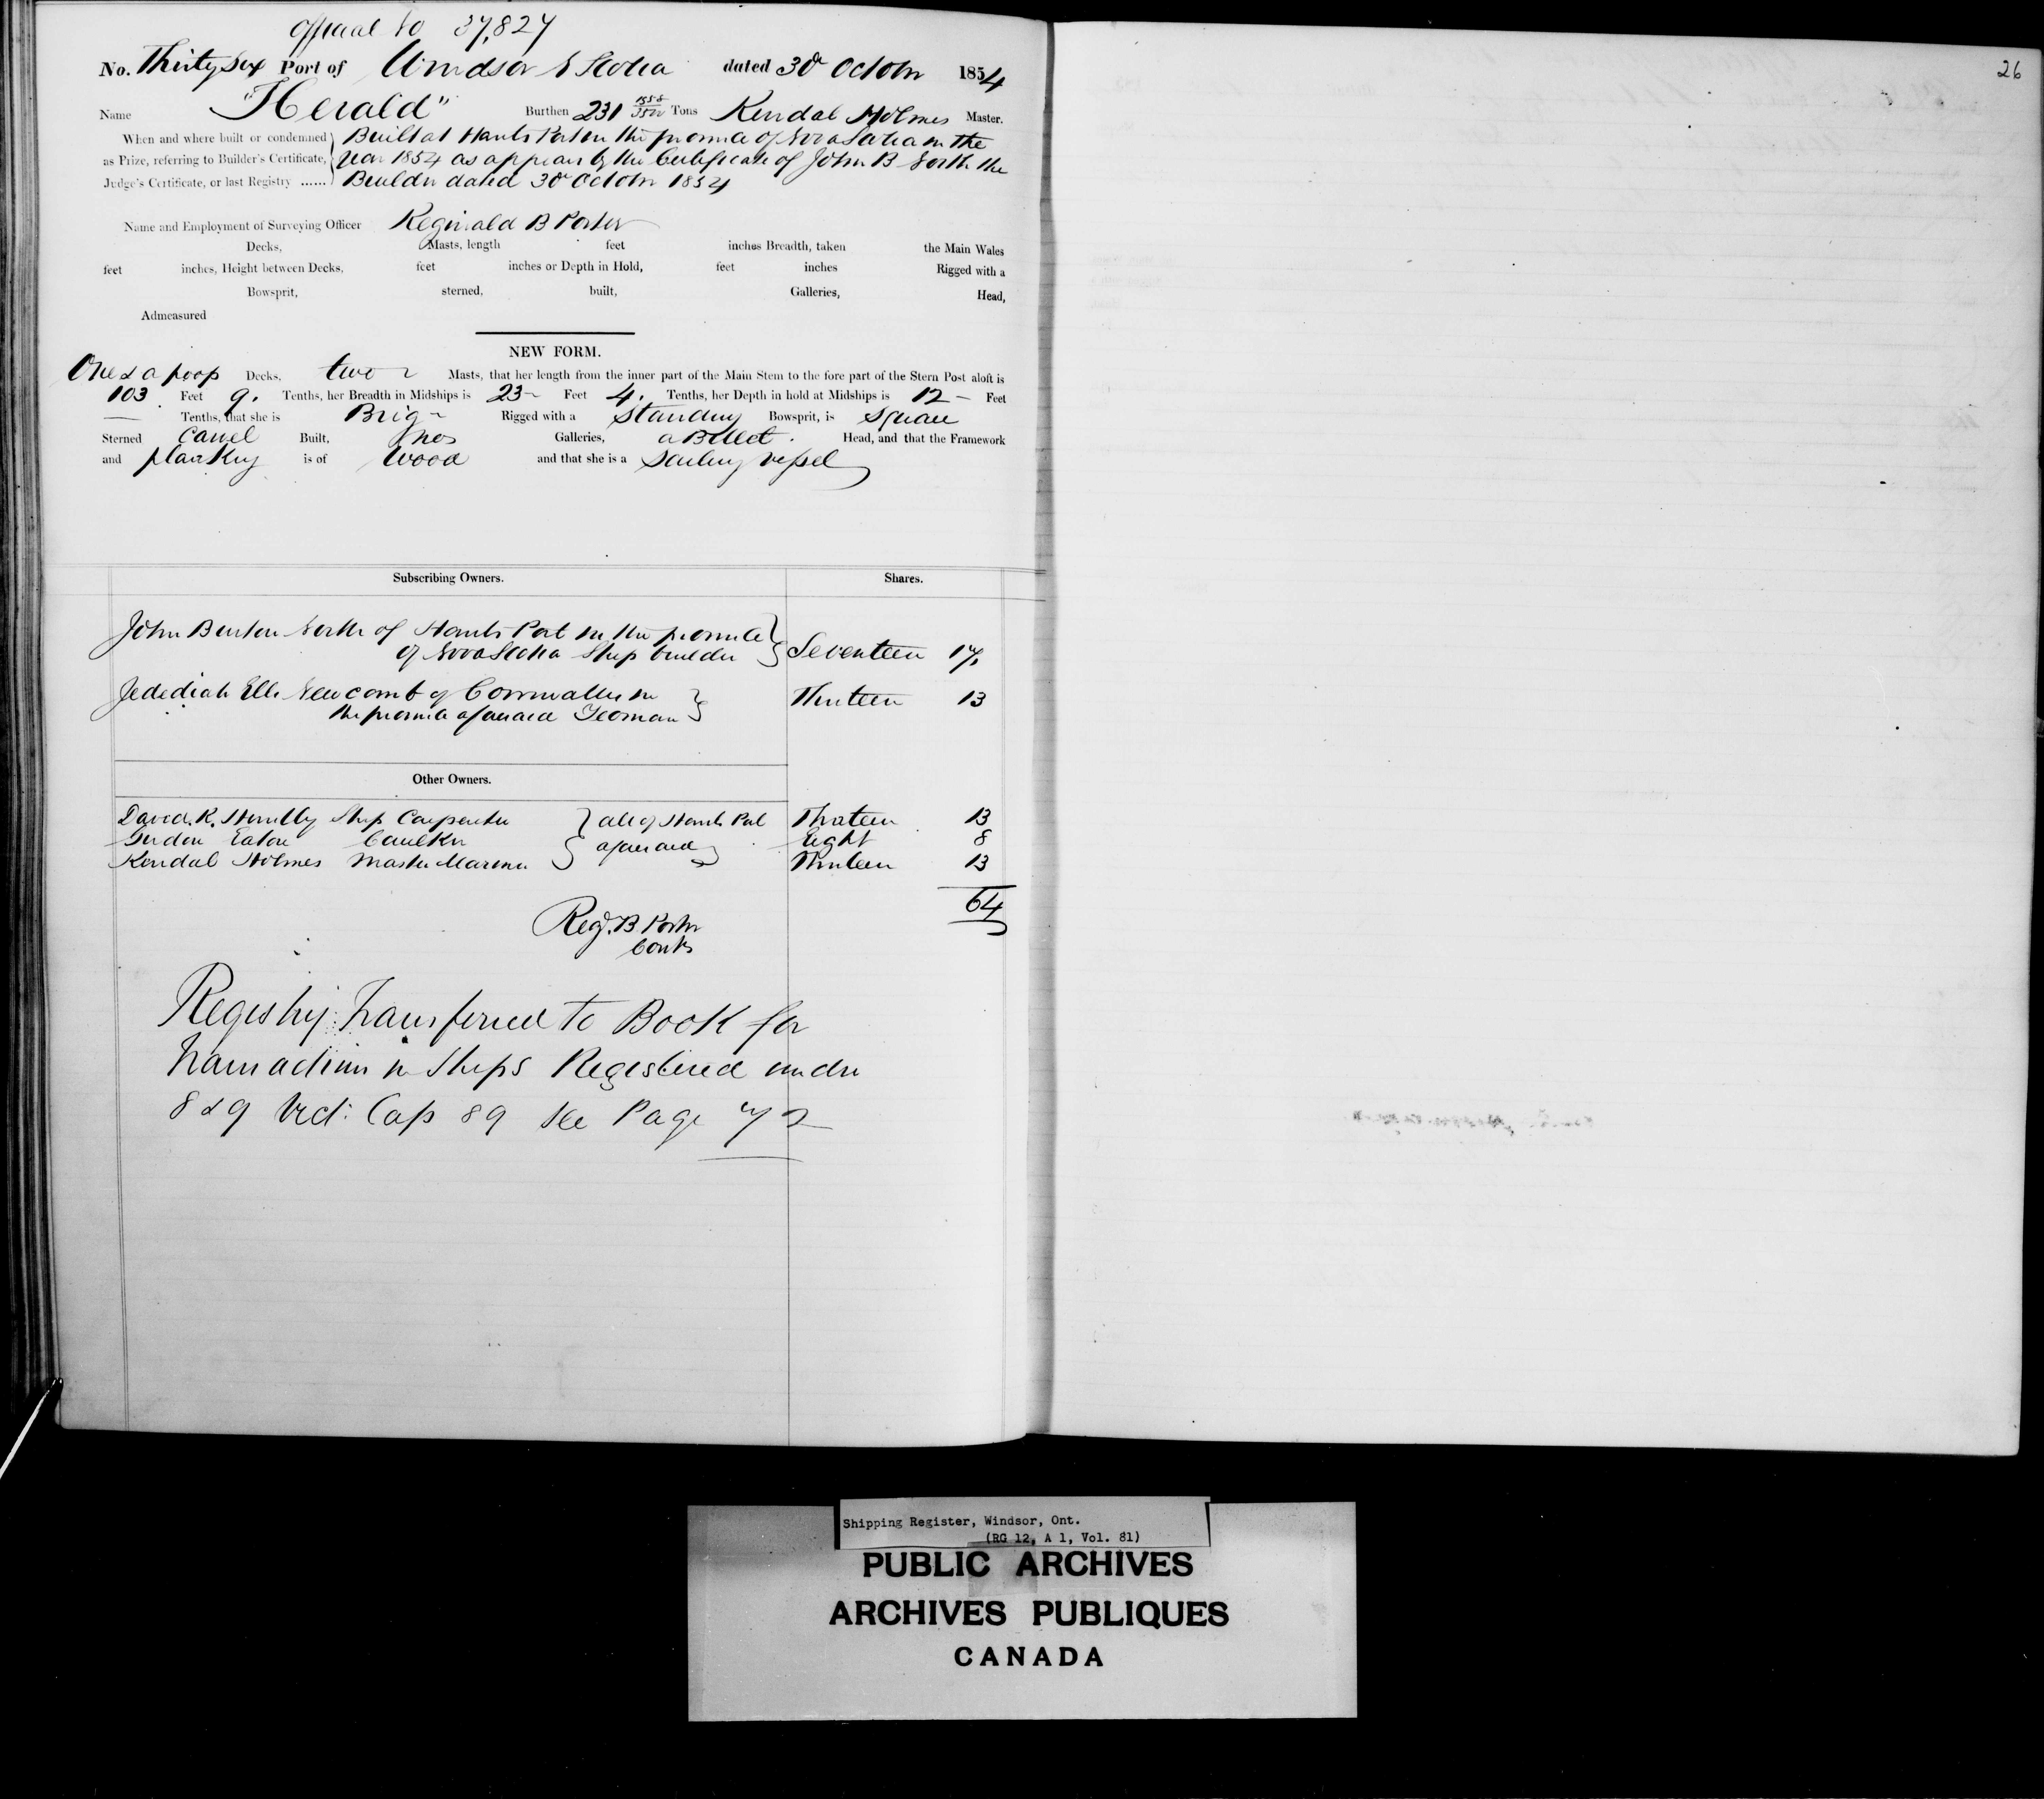 Official No 37,827
No. Thirty Six Port of Windsor N Scotia dated 30th October 1854
26
Name "Herald" Burthen 231 Tons Kendal Holmes Master.
When and where built or condemned as Prize, referring to Builder's Certificate, Judge's Certificate, or last Registry ......
Built at Hants Port in the province of Nova Scotia in the
year 1854 as appears by the Certificate of John B North the
Builder dated 30th October 1854
Name and Employment of Surveying Officer Reginald B Porter
Decks, Masts, length feet inches Breadth, taken the Main Wales
feet inches, Height between Decks, feet inches or Depth in Hold, feet inches Rigged with a
Bowsprit, sterned, built, Galleries, Head,
Admeasured
NEW FORM.
One & a poop Decks, two Masts, that her length from the inner part of the Main Stem to the fore part of the Stern Post aloft is
103 Feet 9. Tenths, her Breadth in Midships is 23 Feet 4. Tenths, her Depth in hold at Midships is 12 Feet
Tenths, that she is Brig Rigged with a Standing Bowsprit, is Square
Sterned Carvel Built, no Galleries, a Billet Head, and that the Framework
and planking is of Wood and that she is a Sailing vessel
Subscribing Owners. Shares.
John Burton North of Hants Port in the province
of Nova Scotia Ship builder Seventeen 17
Jedediah Ells Newcomb of Cornwallis in Thirteen 13
the province aforesaid Yeoman
Other Owners.
David. R. Ship Carpenter all of Hants Port Thirteen 13
Gurdon Eaton Caulker aforesaid Eight 8
Kendal Holmes Master Mariner Thirteen 13
64
Reg. B Porter
Contr
Registry Transferred to Book for
Transactions in Ships Registered under
8 & 9 Vict: Cap 89 see Page 72
Shipping Register, Windsor, Ont.
(RG 12, A 1, Vol. 81)
PUBLIC ARCHIVES
ARCHIVES PUBLIQUES
CANADA